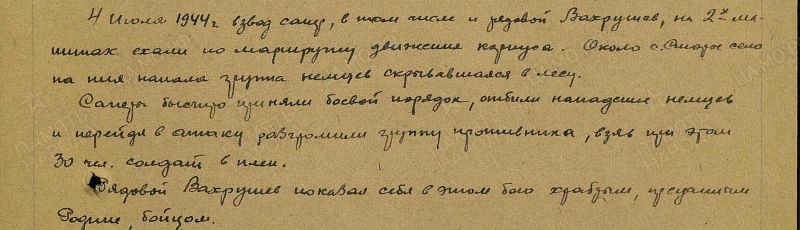 4 Июля 1944г. взвод сапер, в том числе и рядовой Вахрушев, на 2х ма-
шинах ехали по маршруту движения корпуса. Около с. Старое село
на них напала группа немцев скрывавшаяся в лесу.
Саперы быстро приняли боевой порядок, отбили нападение немцев
и перейдя в атаку разгромили группу противника, взяв при этом
30 чел. солдат в плен.
Рядовой Вахрушев показал себя в этом бою храбрым, преданным
Родине, бойцом.